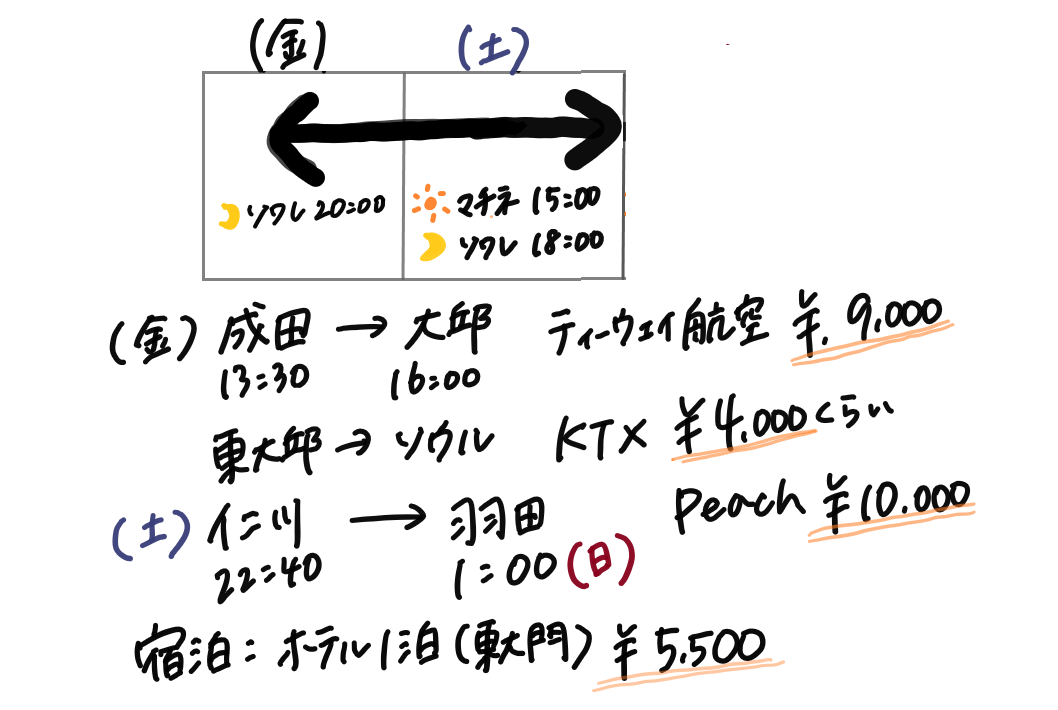 (金) (土)
ソワレ 20:00
マチネ 15:00
ソワレ 18:00
(金) 成田 → 大邱 ティーウェイ航空 ¥.9,000
13:30 16:00
東大邱 → ソウル KTX ¥4,000くらい
(土) 仁川 → 羽田 Peach ¥10.000
22:40 1:00(日)
宿泊: ホテル1泊(東大門) ¥5,500